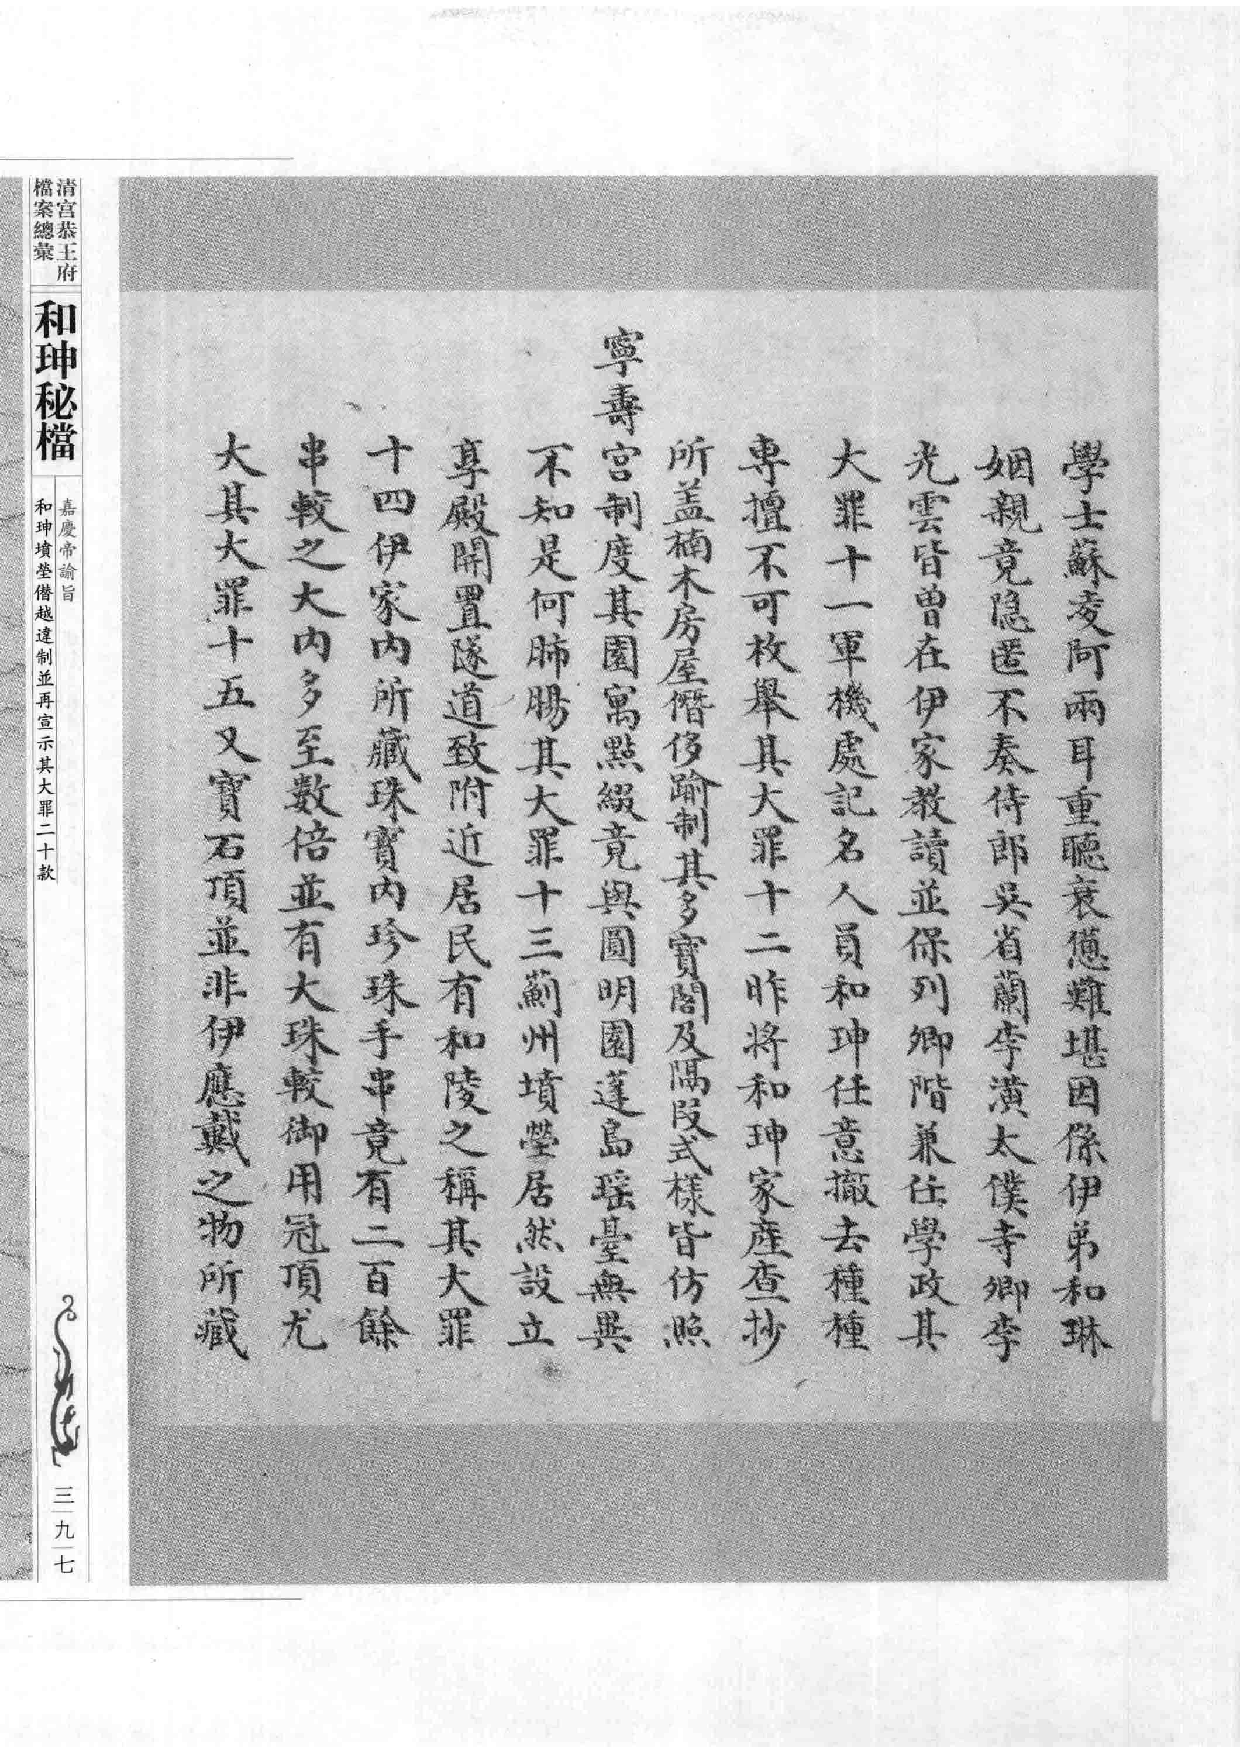 學士蘇凌阿兩耳重聽衰憊難堪因係伊弟和琳
姻親竟隐匿不奏侍郎吳省蘭李潢太僕寺卿李
光雲皆曾在伊家教讀並保列卿階兼任學政其
大罪十一軍機處記名人員和珅任意撤去種種
專擅不可枚舉其大罪十二昨將和珅家產查抄
所盖楠木房屋僭侈踰制其多寶閣及隔段式樣皆仿照
寧壽宮制度其園寓點綴竟與圓明園蓬島瑶臺無異
不知是何肺腸其大罪十三薊州墳塋居然設立
享殿開置隧道致附近居民有和陵之稱其大罪
十四伊家內所藏珠寶內珍珠手串竟有二百餘
串較之大內多至數倍並有大珠較御用冠頂尤
大其大罪十五又寶石頂並非伊應戴之物所藏
清宮恭王府
檔案總彙
和珅秘檔
嘉慶帝諭旨
和珅墳塋僭越違制並再宣示其大罪二十款
三九七